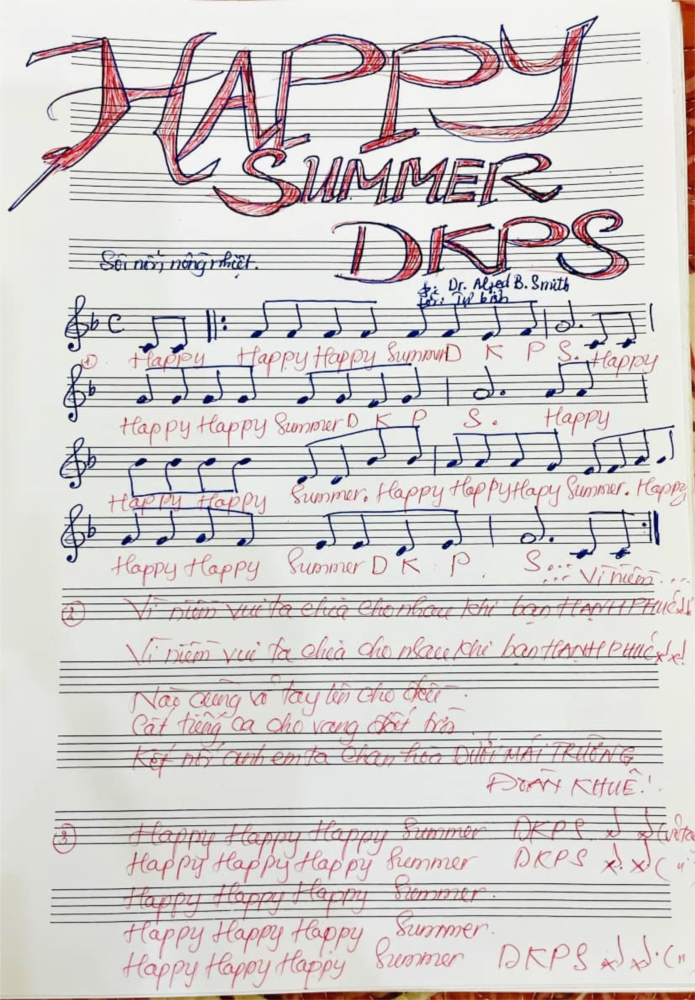 HAPPY
SUMMER
DKPS
Sôi nổi, nồng nhiệt.
Dr. Alfred B. Smith
C
① Happy Happy Happy Summer D K P S. Happy
Happy Happy Summer D K P S. Happy
Happy Happy Summer. Happy Happy Hapy Summer. Happy
Happy Happy Summer D K P S...
... Vì niềm ...
② Vì niềm vui ta chia cho nhau khi bạn HẠNH PHÚC
Vì niềm vui ta chia cho nhau khi bạn HẠNH PHÚC
Nào cùng vỗ tay lên cho đều.
Cất tiếng ca cho vang đất trời.
Kết nối anh em ta chan hòa DƯỚI MÁI TRƯỜNG
ĐOÀN KHUÊ!
③ Happy Happy Happy Summer DKPS (vỗ tay
Happy Happy Happy Summer DKPS ( " )
Happy Happy Happy Summer.
Happy Happy Happy Summer.
Happy Happy Happy Summer DKPS ( "